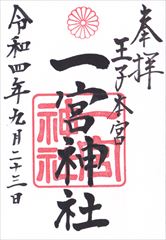 奉拝
王子本宮
一宮神社
一宮神社
令和四年九月二十三日